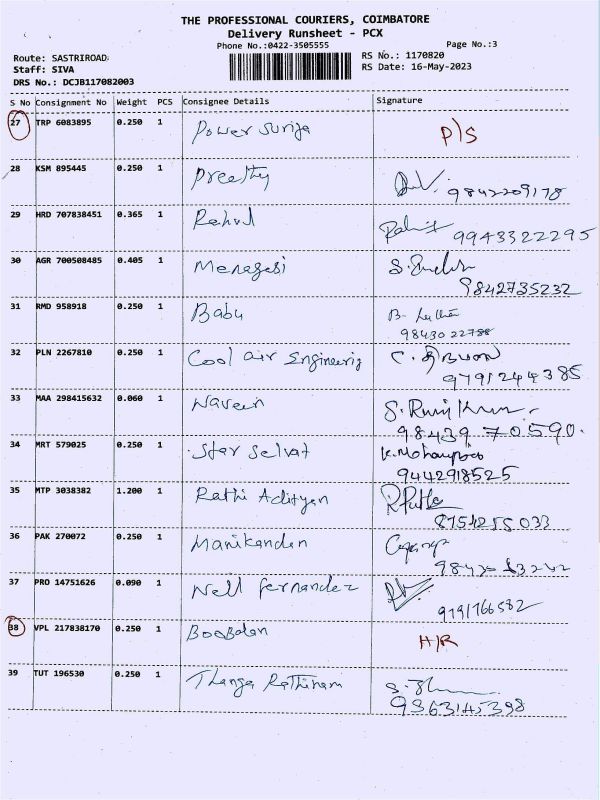 THE PROFESSIONAL COURIERS, COIMBATORE
Delivery Runsheet - PCX
Phone No.:0422-3505555
Page No.:3
Route: SASTRIROAD
RS No.: 1170820
Staff: SIVA
RS Date: 16-May-2023
DRS No.: DCJB117082003
S No Consignment No Weight PCS Consignee Details Signature
27 TRP 6083895 0.250 1 Power Suriya P/S
28 KSM 895445 0.250 1 Preethy
9842209178
29 HRD 707838451 0.365 1 Rahul
9943322295
30 AGR 700508485 0.405 1 Menagasi
9842735232
31 RMD 958918 0.250 1 Babu
98430 22788
32 PLN 2267810 0.250 1 Cool air Engineering
9791244385
33 MAA 298415632 0.060 1 Naveen
98439 70590.
34 MRT 579025 0.250 1 Star Selvat
9442918525
35 MTP 3038382 1.200 1 Rathi Adityan
8754255033
36 PAK 270072 0.250 1 Manikandan
37 PRO 14751626 0.090 1 Nell fernandez
9791766582
38 VPL 217838170 0.250 1 Boobalan H/R
39 TUT 196530 0.250 1 Thanga Rathinam
9363145398